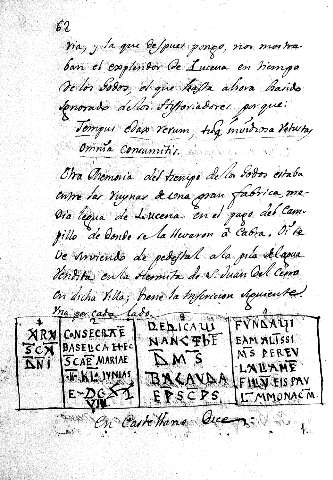 62
ria, y la que despues pongo, nos mostra-
ban el explendor de Lucena en tiempo
de los Godos, el que hasta ahora ha sido
ignorado de los Historiadores porque:
Tempus edax rerum, tuq invidiosa Vetustas
Omnia Consumitis.
Otra Memoria del tiempo de los Godos estaba
entre las ruynas de una gran fabrica me-
dia legua de Lucena en el pago del Cam-
pillo de donde se la llevaron à Cabra. Oi
de sirviendo de pedestal a la pila del agua
vendita en la Hermita de S. Juan del Cerro
en dicha Villa; tiene la inscricion siguiente
una por cada lado.
XRX
SCX
DNI
CONSECRATE
BASELICA HEC
SCAE MARIAE
II KL IUNIAS
DEDICAUI
DMS
BACAUDA
EPSCPS
FUNDAUI
EAM ALTISSI
MS PER EU
LALIAME
FILIU EIS PAU
LMMONACM
en Castellano Dice